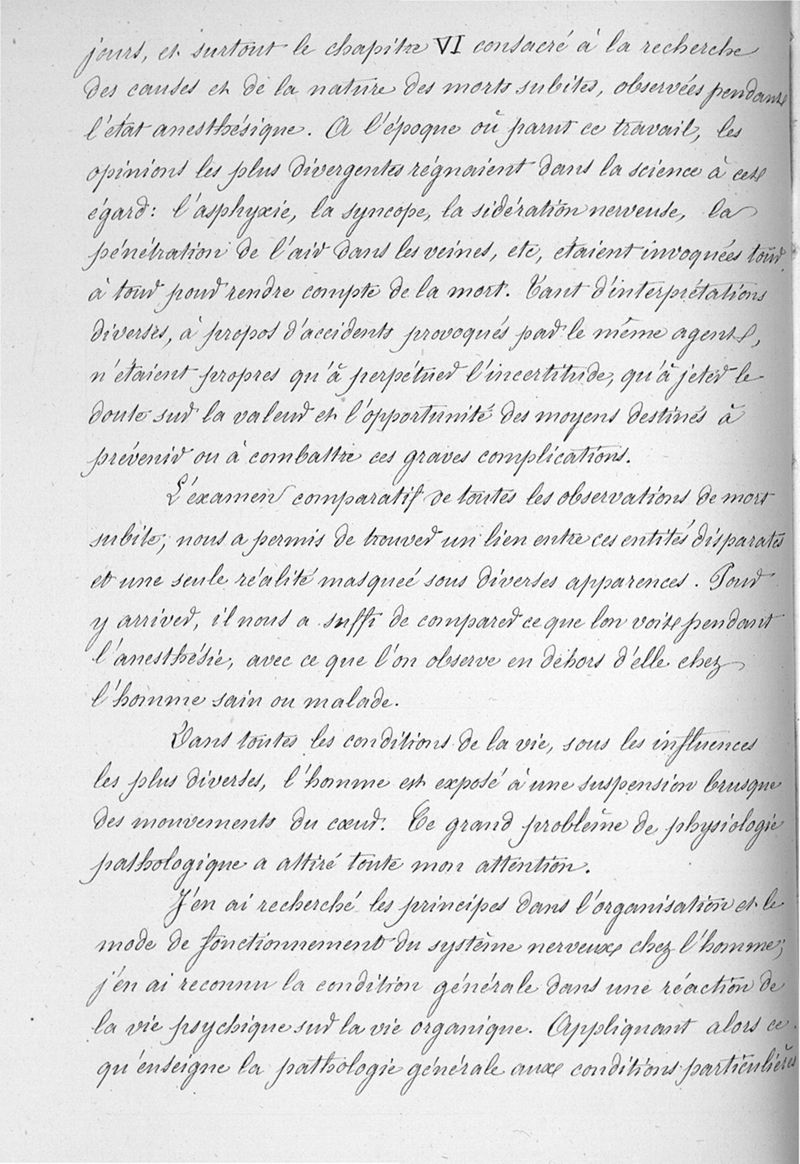 jours, et surtout le chapitre VI consacré à la recherche
des causes et de la nature des morts subites, observées pendant
l'état anesthésique. A l'époque où parut ce travail, les
opinions les plus divergentes régnaient dans la science à cet
égard: l'asphyxie, la syncope, la sidération nerveuse, la
pénétration de l'air dans les veines, etc, étaient invoquées tour
à tour pour rendre compte de la mort. Tant d'interprétations
diverses, à propos d'accidents provoqués par le même agent,
n'étaient propres qu'à perpétuer l'incertitude, qu'à jeter le
doute sur la valeur et l'opportunité des moyens destinés à
prévenir ou à combattre ces graves complications.
L'examen comparatif de toutes les observations de mort
subite, nous a permis de trouver un lien entre ces entités disparates
et une seule réalité masqueé sous diverses apparences. Pour
y arriver, il nous a suffi de comparer ce que lon voit pendant
l'anesthésie, avec ce que l'on observe en dehors d'elle chez
l'homme sain ou malade.
Dans toutes les conditions de la vie, sous les influences
les plus diverses, l'homme est exposé à une suspension brusque
des mouvements du cœur. Ce grand problème de physiologie
pathologique a attiré toute mon attention.
J'en ai recherché les principes dans l'organisation et le
mode de fonctionnement du système nerveux chez l'homme;
j'en ai reconnu la condition générale dans une réaction de
la vie psychique sur la vie organique. Appliquant alors ce
qu'enseigne la pathologie générale aux conditions particulières